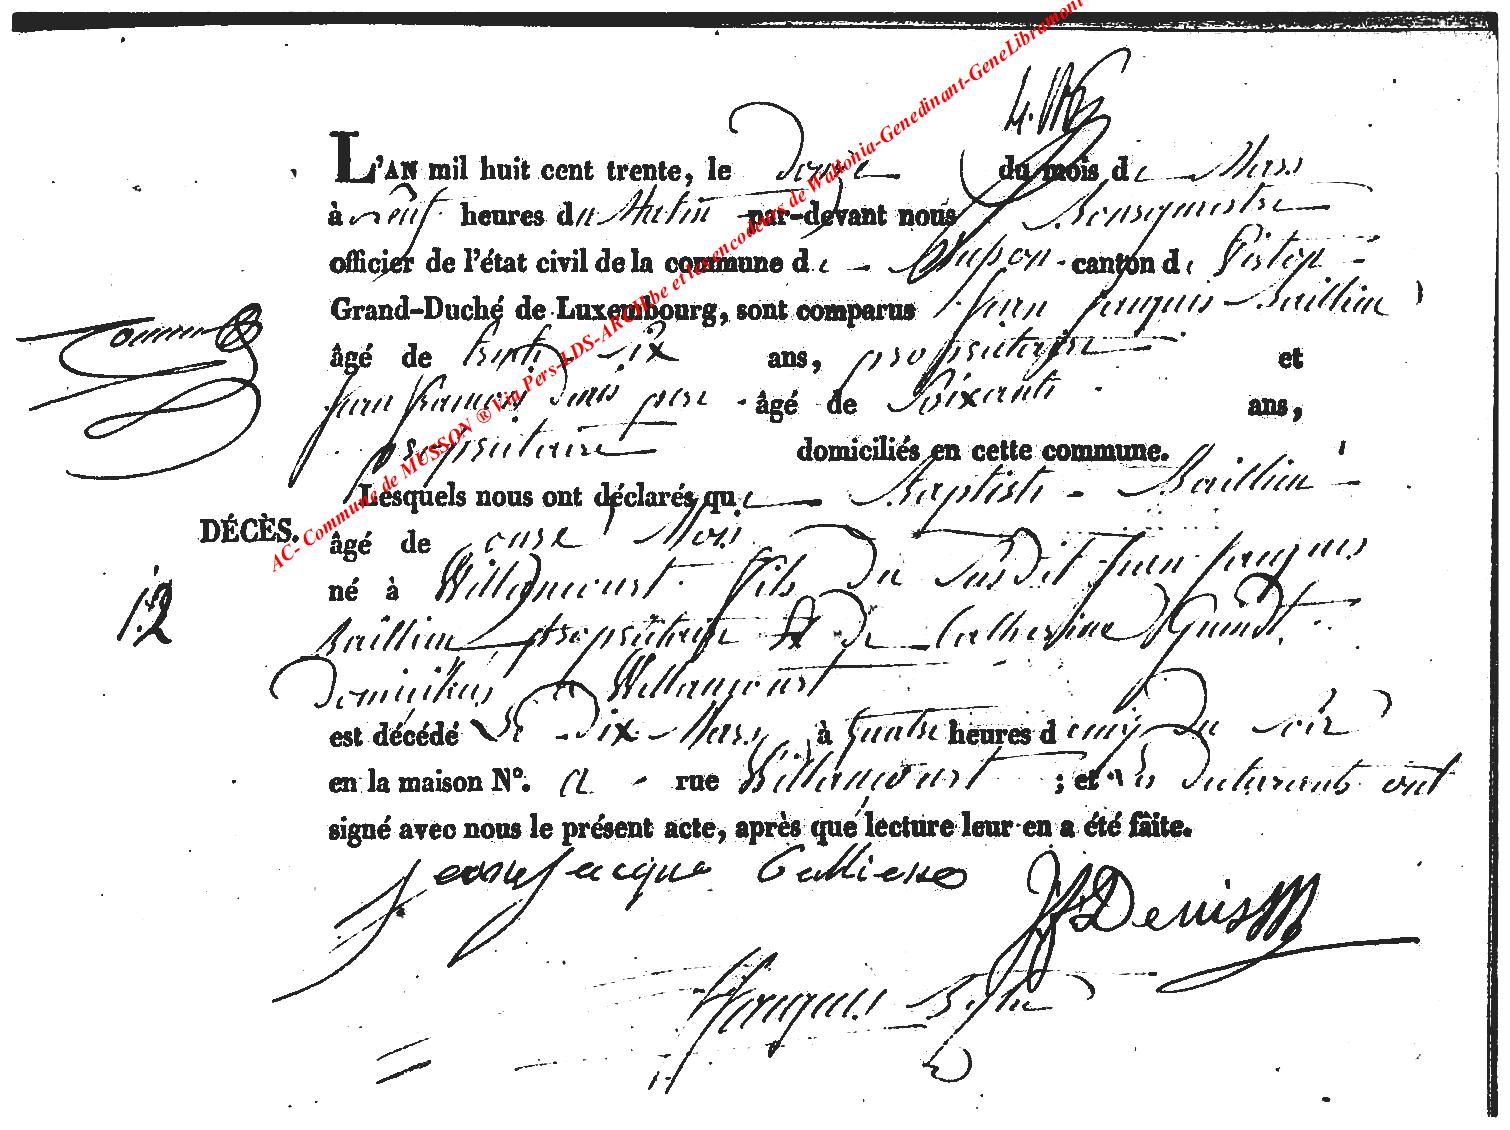 L'AN mil huit cent trente, le Douze du mois de Mars
à neuf heures du Matin par-devant nous Bourgmestre
officier de l'état civil de la commune de Musson canton de Virton
Grand-Duché de Luxembourg, sont comparus Jean Jacques Baillieu
âgé de trente six ans, propriétaire et
Jean françois Denis père âgé de Soixante ans,
propriétaire domiciliés en cette commune.
Lesquels nous ont déclarés que Baptiste Baillieu
DÉCÈS.
12
âgé de onze Mois
né à Willancourt fils du susdit Jean Jacques
Baillieu propriétaire et de Catherine
Domiciliés à Willancourt
est décédé Le Dix Mars à quatre heures demy du soir
en la maison N°. rue Willancourt ; et les déclarants ont
signé avec nous le présent acte, après que lecture leur en a été faite.
Jean Jacque
JF Denis
AC- Commune de MUSSON ® Via Pers-LDS-ARCH.be et les encodeurs de Wallonia-Genedinant-GeneLibramont